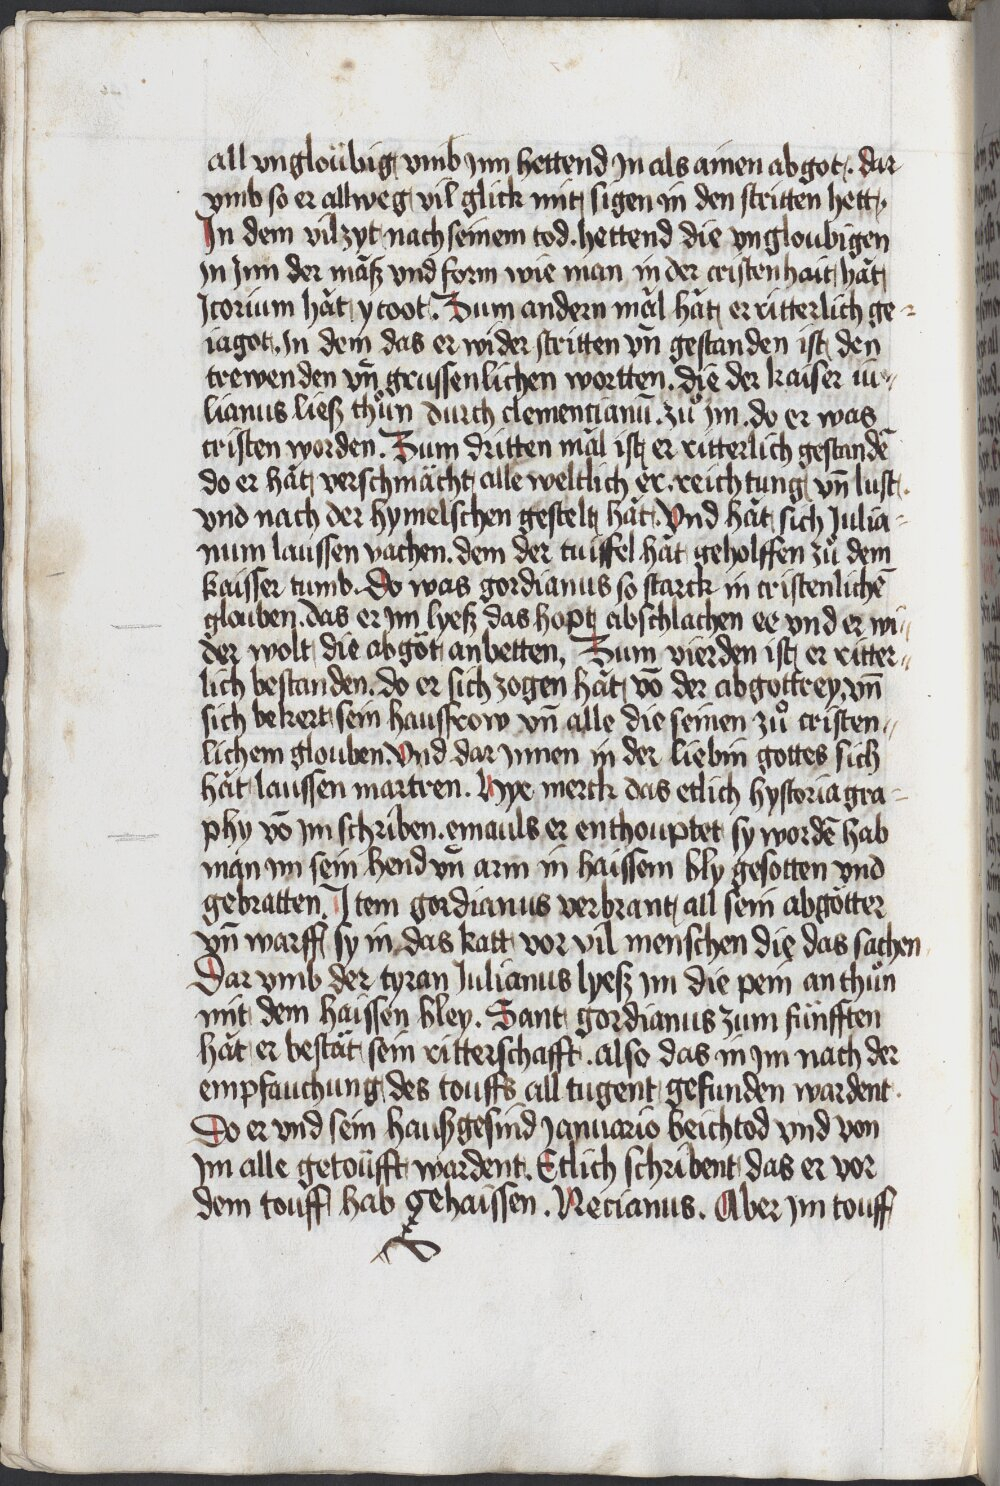 all vngloübig vmb jnn hettend jn als ainen abgot. dar
vmb so er allweg vil glick mit sigen in den stritten hett.
In dem vil zyt nach seinem tod. hettend die vngloubigen
jn jnn der mäß vnd form wie man in der cristenhait hät
Jcorium hät ycoot. Zum andern mäl hät er ritterlich ge-
iagot. In dem das er wider stritten vn̄ gestanden ist den
trewenden vn̄ grussenlichen wortten. die der kaiser iu-
lianus ließ thůn durch clementianū. zů jm. do er was
cristen worden. Zum dritten mäl ist er ritterlich gestandē
do er hät verschmächt alle weltlich er. reichtung vn̄ lust.
vnd nach der hymelschen gestelt hät. Vnd hät sich Julia-
num laussen vachen. dem der tuiffel hät geholffen zů dem
kaisser tumb. Do was gordianus so starck in cristenlichē
glouben. das er jm lyeß das hopt abschlachen ee vnd er wi-
der wolt die abgöt anbetten. Zum vierden ist er ritter-
lich bestanden. do er sich zogen hät vō der abgottrey, vn̄
sich bekert sein haussfrow vn̄ alle die seinen zů cristen-
lichem glouben. Vnd dar jnnen in der liebin gottes sich
hät laussen martren. Hye merck das etlich hystoriagra-
phy vō jm schriben. emauls er enthouptet sy wordē hab
man im sein hend vn̄ arm in haissem bly gesotten vnd
gebratten. Item gordianus verbrant all sein abgötter
vn̄ warff sy in das katt vor vil menschen die das sachen
Dar vmb der tyran Julianus lyeß jm die pein an thůn
mit dem haissen bley. Sant gordianus zum fünfften
hät er bestät sein ritterschafft. also das in jm nach der
empfauchung des touffs all tugent gefunden wardent.
Do er vnd sein haußgesind januario beichtod vnd von
jm alle getoüfft wardent. Etlich schribent das er vor
dem touff hab gehaissen. Recianus. Aber jm touff